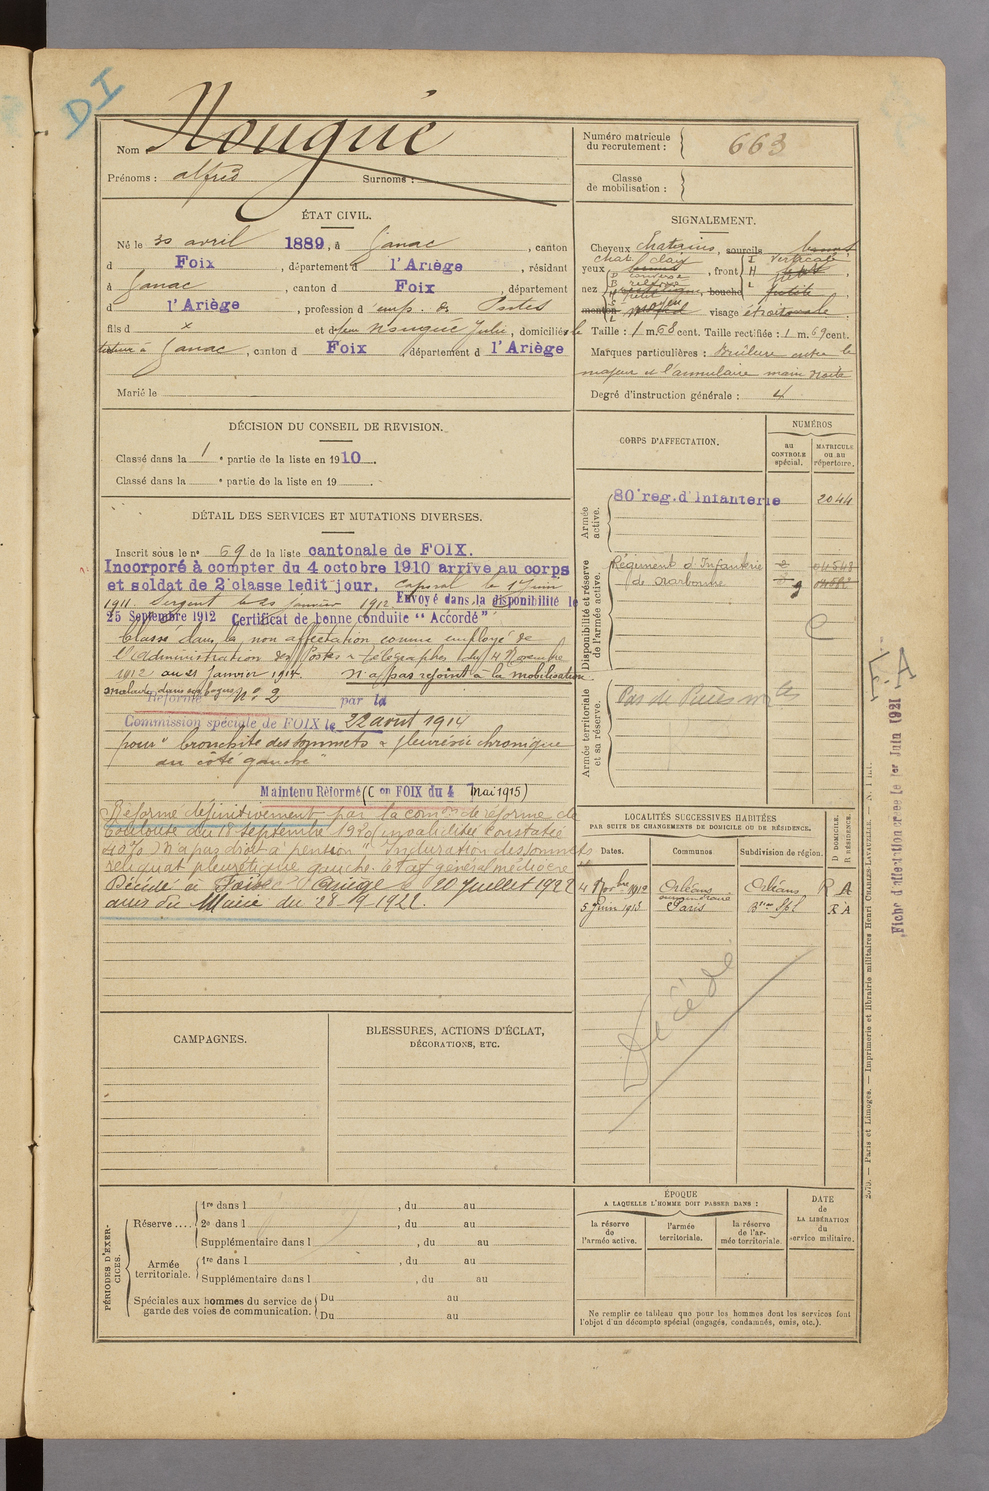 DI
Nom Nougué
Prénoms : alfred Surnoms :
Numéro matricule du recrutement : 663
Classe de mobilisation :
ÉTAT CIVIL.
Né le 30 avril 1889, à Ganac, canton
d Foix, département d l'Ariège, résidant
à Ganac, canton d Foix, département
d l'Ariège, profession d emp. des Postes
fils d x et d feu Nougué Julie, domiciliés
à Ganac, canton d Foix, département d l'Ariège
Marié le
SIGNALEMENT.
Cheveux chatains, sourcils
yeux chat. clair, front
nez, bouche
menton, visage
Taille : 1 m. 68 cent. Taille rectifiée : 1 m. 69 cent.
Marques particulières : Brûlure entre le
majeur et l'annulaire main droite
Degré d'instruction générale : 4
DÉCISION DU CONSEIL DE REVISION.
Classé dans la 1e partie de la liste en 1910.
Classé dans la e partie de la liste en 19 .
DÉTAIL DES SERVICES ET MUTATIONS DIVERSES.
Inscrit sous le n° 69 de la liste cantonale de FOIX.
Incorporé à compter du 4 octobre 1910 arrivé au corps
et soldat de 2e classe ledit jour, Caporal le 1 Juin
1911 Sergent le 21 janvier 1912 Envoyé dans la disponibilité le
25 Septembre 1912 Certificat de bonne conduite "Accordé"
Classé dans la non affectation comme employé de
l'Administration des Postes & télégraphes du 4 Novembre
1912 au 21 Janvier 1914. N'a pas rejoint à la mobilisation.
malade dans ses foyers
Réformé n° 2 par la
Commission spéciale de FOIX le 22 août 1914
pour "bronchite des sommets & pleurésie chronique
au côté gauche
Maintenu Réformé (Con FOIX du 4 Mai 1915)
Réformé définitivement par la comon de réforme de
Toulouse du 18 septembre 1920 invalidité constatée
40% N'a pas droit à pension "Induration des sommets
reliquat pleurétique gauche. Etat général médiocre
Décédé à Foix Ariège le 20 Juillet 1922
avis du Maire du 28-9-1922.
CORPS D'AFFECTATION.
NUMÉROS
au CONTROLE spécial.
MATRICULE ou au répertoire.
Armée active.
80e rég. d'Infanterie 2044
Disponibilité et réserve de l'armée active.
Régiment d'Infanterie
de Narbonne
Armée territoriale et sa réserve.
Pas de Pièces mles
F.A
Fiche d'affectation créée le 1er Juin 1921
LOCALITÉS SUCCESSIVES HABITÉES
PAR SUITE DE CHANGEMENTS DE DOMICILE OU DE RÉSIDENCE.
Dates. Communes Subdivision de région. D DOMICILE. R RÉSIDENCE.
4 Novbre 1912 Orléans Orléans R A
5 Juin 1913 Paris R A
Décédé
CAMPAGNES.
BLESSURES, ACTIONS D'ÉCLAT,
DÉCORATIONS, ETC.
PÉRIODES D'EXERCICES.
Réserve....
1re dans l , du au
2e dans l , du au
Supplémentaire dans l , du au
Armée territoriale.
1re dans l , du au
Supplémentaire dans l , du au
Spéciales aux hommes du service de garde des voies de communication.
Du au
Du au
ÉPOQUE
A LAQUELLE L'HOMME DOIT PASSER DANS :
la réserve de l'armée active.
l'armée territoriale.
la réserve de l'armée territoriale.
DATE de LA LIBÉRATION du service militaire.
Ne remplir ce tableau que pour les hommes dont les services font
l'objet d'un décompte spécial (engagés, condamnés, omis, etc.).
Paris et Limoges. — Imprimerie et librairie militaires Henri CHARLES-LAVAUZELLE.